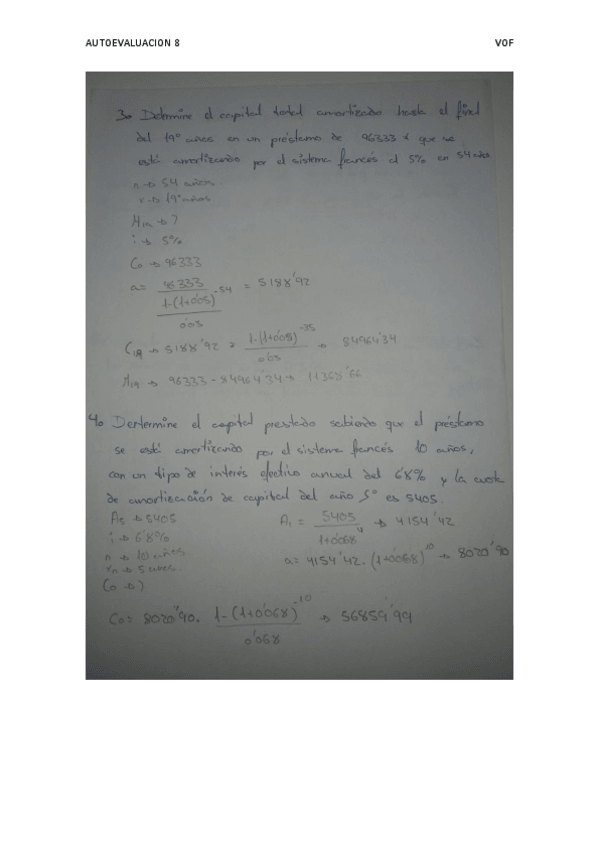 AUTOEVALUACION 8 VOF
3º Determine el capital total amortizado hasta el final
del 19º años en un préstamo de 96333 € que se
está amortizando por el sistema francés al 5% en 54 años
n → 54 años
x → 19º años
M19 → ?
i → 5%
C0 → 96333
a = 96333 / (1-(1+0'05)^-54 / 0'05) = 5188'92
C19 → 5188'92 × 1-(1+0'05)^-35 / 0'05 → 84964'34
M19 → 96333 - 84964'34 → 11368'66
4º Dertermine el capital prestado sabiendo que el préstamo
se está amortizando por el sistema francés 10 años,
con un tipo de interés efectivo anual del 6'8% y la cuota
de amortización de capital del año 5º es 5405.
A5 → 5405
i → 6'8%
n → 10 años
5 años.
C0 → ?
A1 = 5405 / 1+0'068^4 → 4154'42
a = 4154'42 · (1+0'068)^10 → 8020'90
C0 = 8020'90 · 1-(1+0'068)^-10 / 0'068 → 56859'99